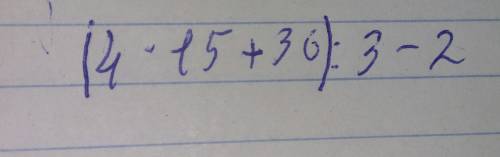 (4 · 15 + 30) : 3 - 2